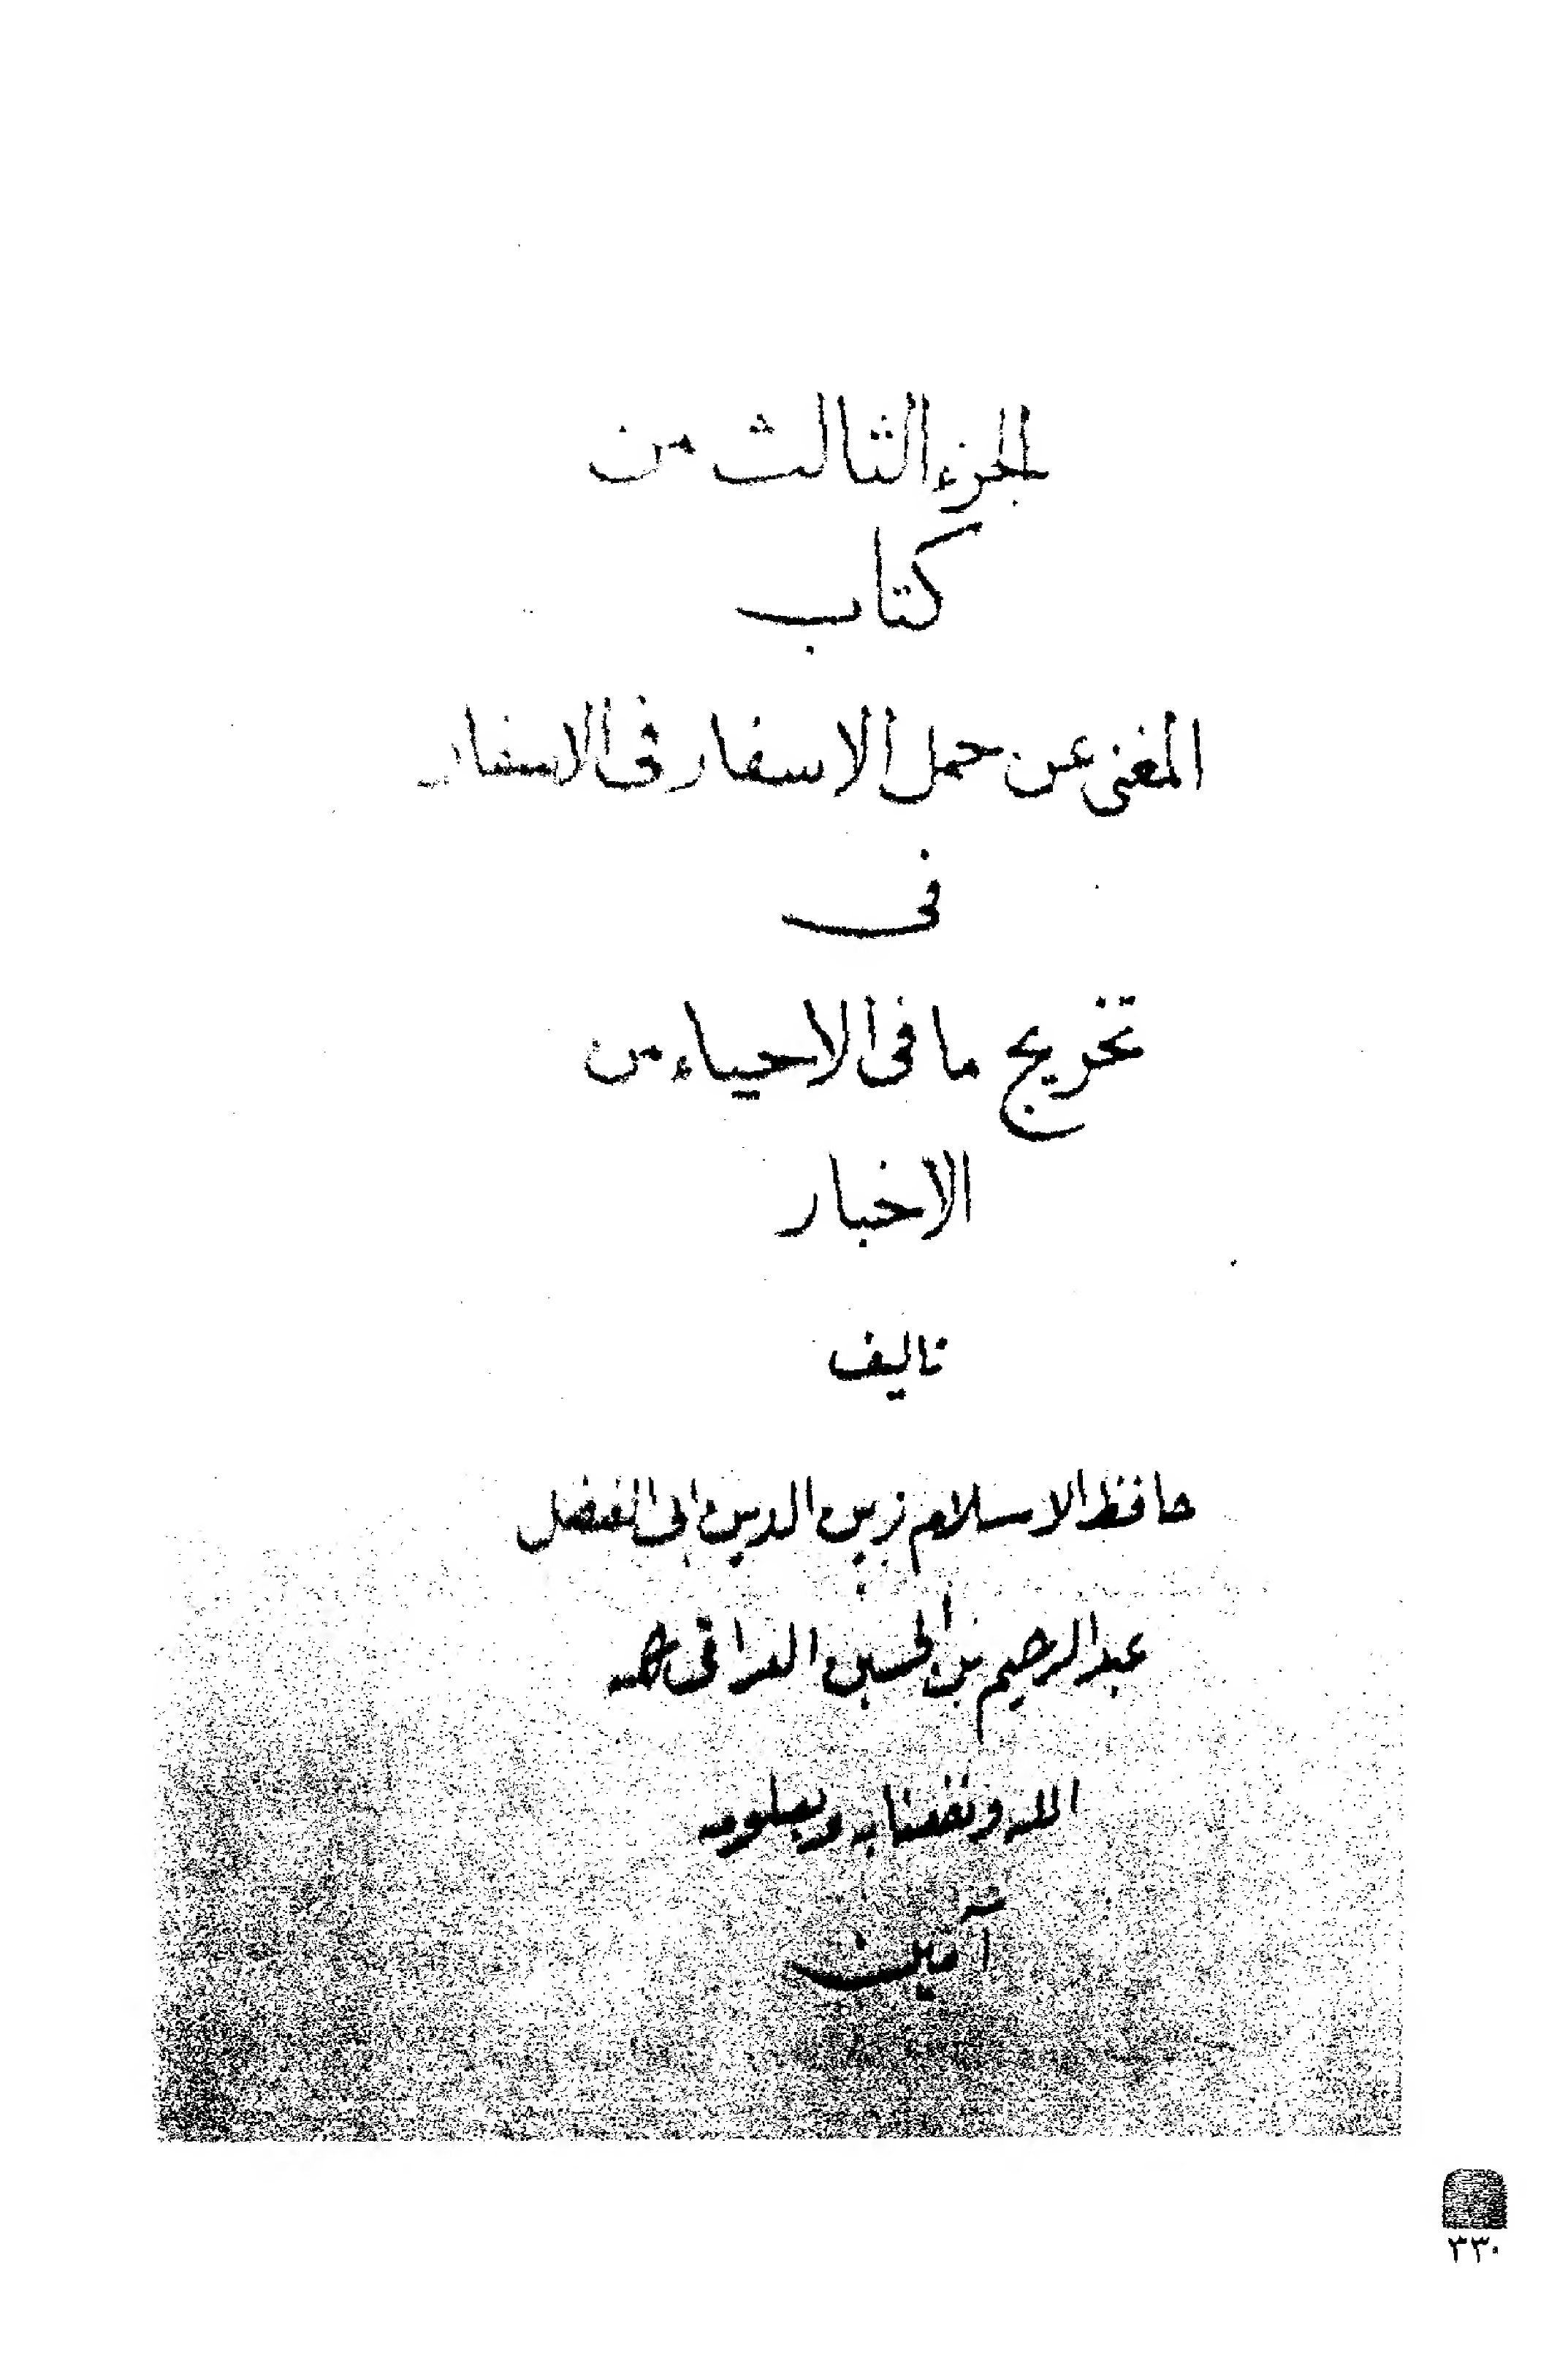 الجزء الثالث من
كتاب
المغنى عن حمل الاسفار فى الاسفار
فى
تخريج ما فى الاحياء من
الاخبار
تاليف
حافظ الاسلام زين الدين ابى الفضل
عبد الرحيم بن الحسين العراقى رحمه
الله ونفعنا به وبعلومه
آمين
٣٣٠